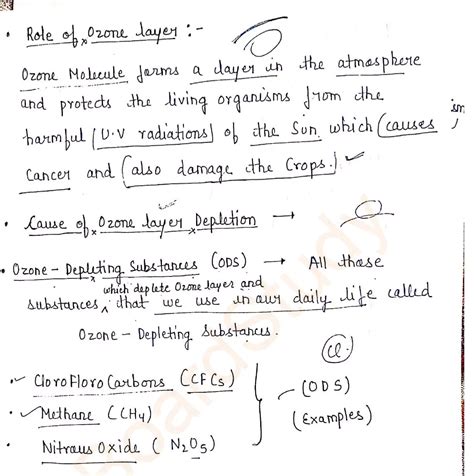 • Role of Ozone layer :-
Ozone Molecule forms a layer in the atmosphere
and protects the living organisms from the
harmful (U.V radiations) of the Sun which (causes
Cancer and (also damage the Crops.)
• Cause of Ozone layer Depletion →
• Ozone - Depleting Substances (ODS) → All those
which deplete Ozone layer and
substances, that we use in our daily life called
Ozone - Depleting Substances.
• CloroFloroCarbons (CFCs)
• Methane (CH4)
• Nitraus Oxide (N2O5)
Cl.
(ODS)
(Examples)
BoardStudy